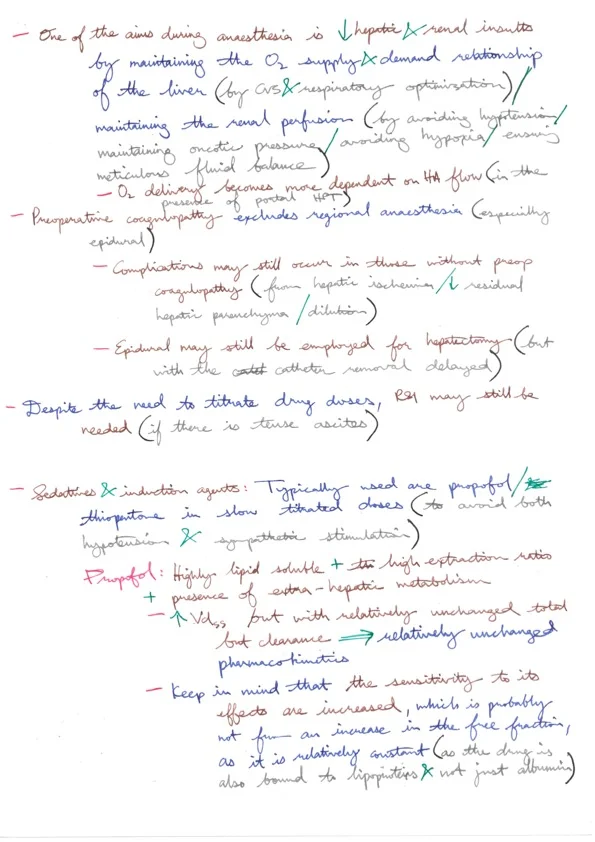 – One of the aims during anaesthesia is ↓ hepatic & renal insults
by maintaining the O2 supply & demand relationship
of the liver (by CVS & respiratory optimization) /
maintaining the renal perfusion (by avoiding hypotension /
maintaining oncotic pressure / avoiding hypoxia / ensuring
meticulous fluid balance)
– O2 delivery becomes more dependent on HA flow (in the
presence of portal HPT)
– Preoperative coagulopathy excludes regional anaesthesia (especially
epidural)
– Complications may still occur in those without preop
coagulopathy (from hepatic ischemia / ↓ residual
hepatic parenchyma / dilution)
– Epidural may still be employed for hepatectomy (but
with the catheter removal delayed)
– Despite the need to titrate drug doses, RSI may still be
needed (if there is tense ascites)
– Sedatives & induction agents: Typically used are propofol /
thiopentone in slow titrated doses (to avoid both
hypotension & sympathetic stimulation)
Propofol: Highly lipid soluble + high extraction ratio
+ presence of extra-hepatic metabolism
– ↑ Vdss but with relatively unchanged total
but clearance ⟹ relatively unchanged
pharmacokinetics
– Keep in mind that the sensitivity to its
effects are increased, which is probably
not from an increase in the free fraction,
as it is relatively constant (as the drug is
also bound to lipoproteins & not just albumin)